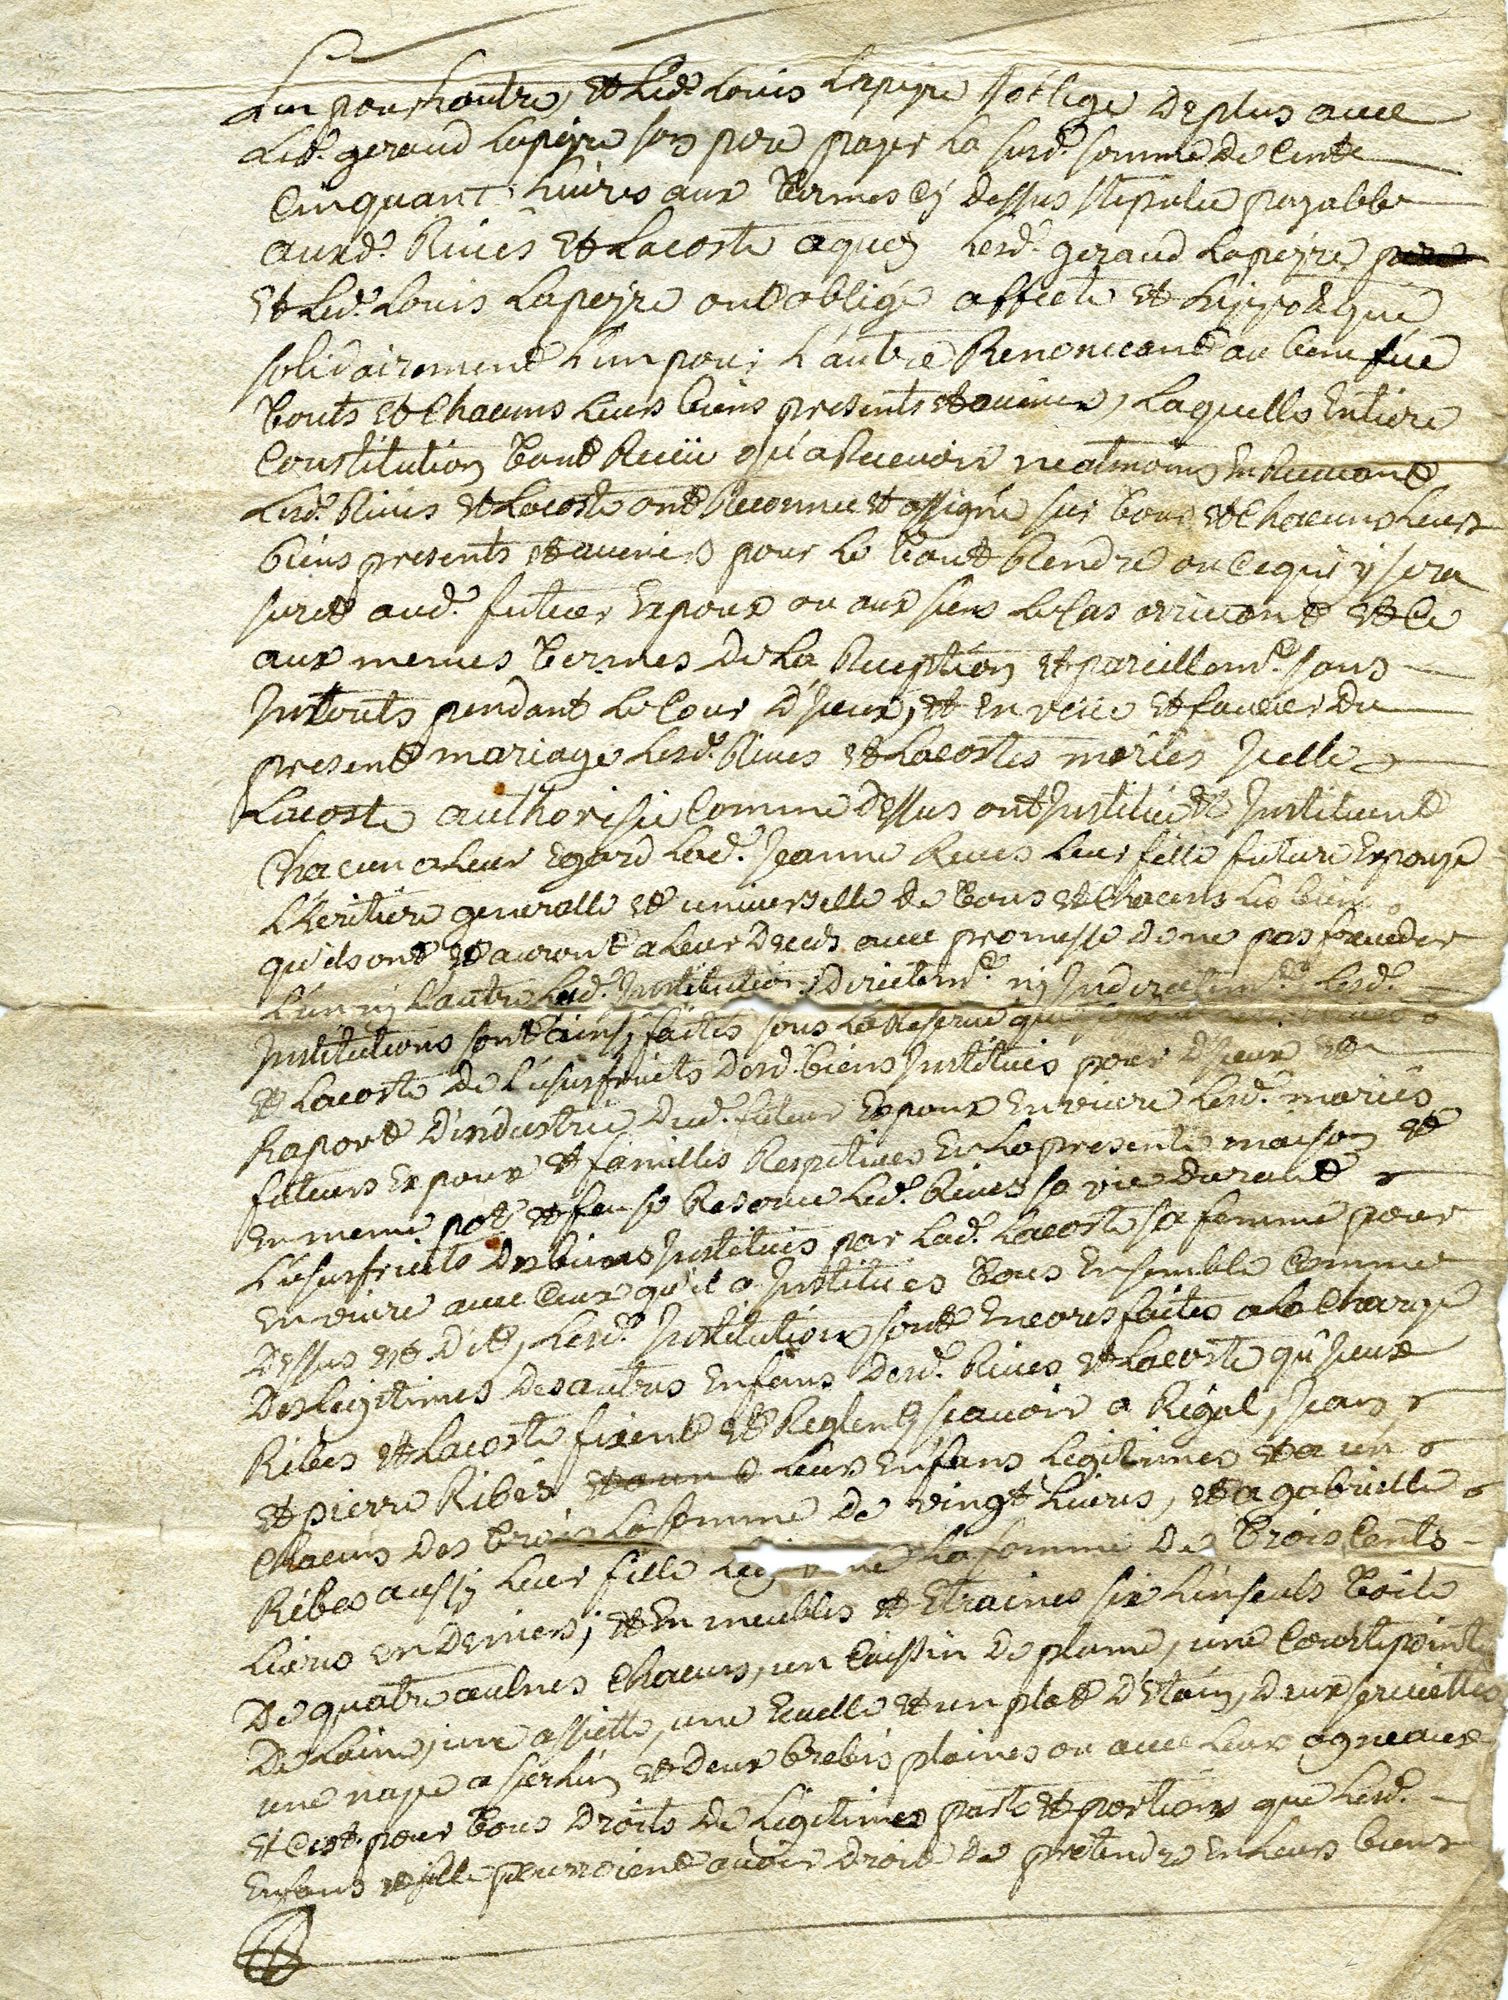 L'un pour L'autre, et Led. Louis Lapeyre s'oblige de plus avec
Led. geraud Lapeyre son pere payer La susd. somme de Cent
Cinquant Livres aux termes Cy dessus stipulée payable
auxd. Rives et Lacoste a quoy Lesd. geraud Lapeyre
et Led. Louis Lapeyre ont obligé affecté et hippotequé
solidairement L'un pour L'autre Renonceant au benefice
touts et Chacuns Leurs biens presents et avenir, Laquelle Entiere
Constitution tant Reçüe qu'a Recevoir neatmoins En Recevant
Lesd. Rives et Lacoste ont Reconnue et assigné sur tous et Chacuns Leurs
biens presents et avenirs pour Le tout Rendre ou Ce qui y sera
suret aud. futeur Expoux ou aux siens Le Cas arrivant et Ce
aux memes termes de La Reception et pareillem.t sans
Interets pendant Le Cour d'Iceux, et en veüe et faveur du
present mariage Lesd. Rives et Lacostes mariés Icelle
Lacoste authorisée Comme dessus ont Institué et Instituent
Chacun a Leur Egard Lad. Jeanne Rives Leur fille future Expouze
L'heritiere generalle et universelle de tous et Chacuns Les biens
qu'ils ont et auront a Leur deces avec promesse de ne pas frauder
L'un ny L'autre Lesd. Institutions Directem.t ny Indirectem.t Lesd.
Institutions sont ainsy faites sous La Reserve que
et Lacoste de L'usufruits desd. biens Institués pour d'Iceux et
Raport d'industrie dud. futeur Expoux En vivre Lesd. mariés
futeurs Expoux et familles Respetives En La presente maison et
en meme pot et feu se Reserve Led. Rives sa vie durant
L'usufruits des biens Institués par Lad. Lacoste sa femme pour
En vivre avec Ceux qu'il a Institués tous Ensemble Comme
dessus est dit, Lesd. Institutions sont Encores faites a La Charge
des Legitimes des autres Enfans desd. Rives et Lacoste qu'Iceux
Ribes et Lacoste fixent et Reglent sçavoir a Rigal, Jean
et pierre Ribes Leurs Enfans Legitimes et a un
Chacuns des trois La somme de vingt Livres, et a gabrielle
Ribes aussy Leur fille La somme de trois Cents
Livres en deniers, et En meubles et Etraines six Linseuls toile
de quatre aulnes Chacuns, un Cuissin de plume, une Courtepointe
de Laine, une assiette, une Ecuelle et un plat d'Etain, deux serviettes
une nape a et deux brebis plaines ou avec Leurs agneaux
et C'est pour tous droits de Legitimes part et portions que Lesd.
Enfans et fille pourroient avoir droit de pretendre En Leurs biens